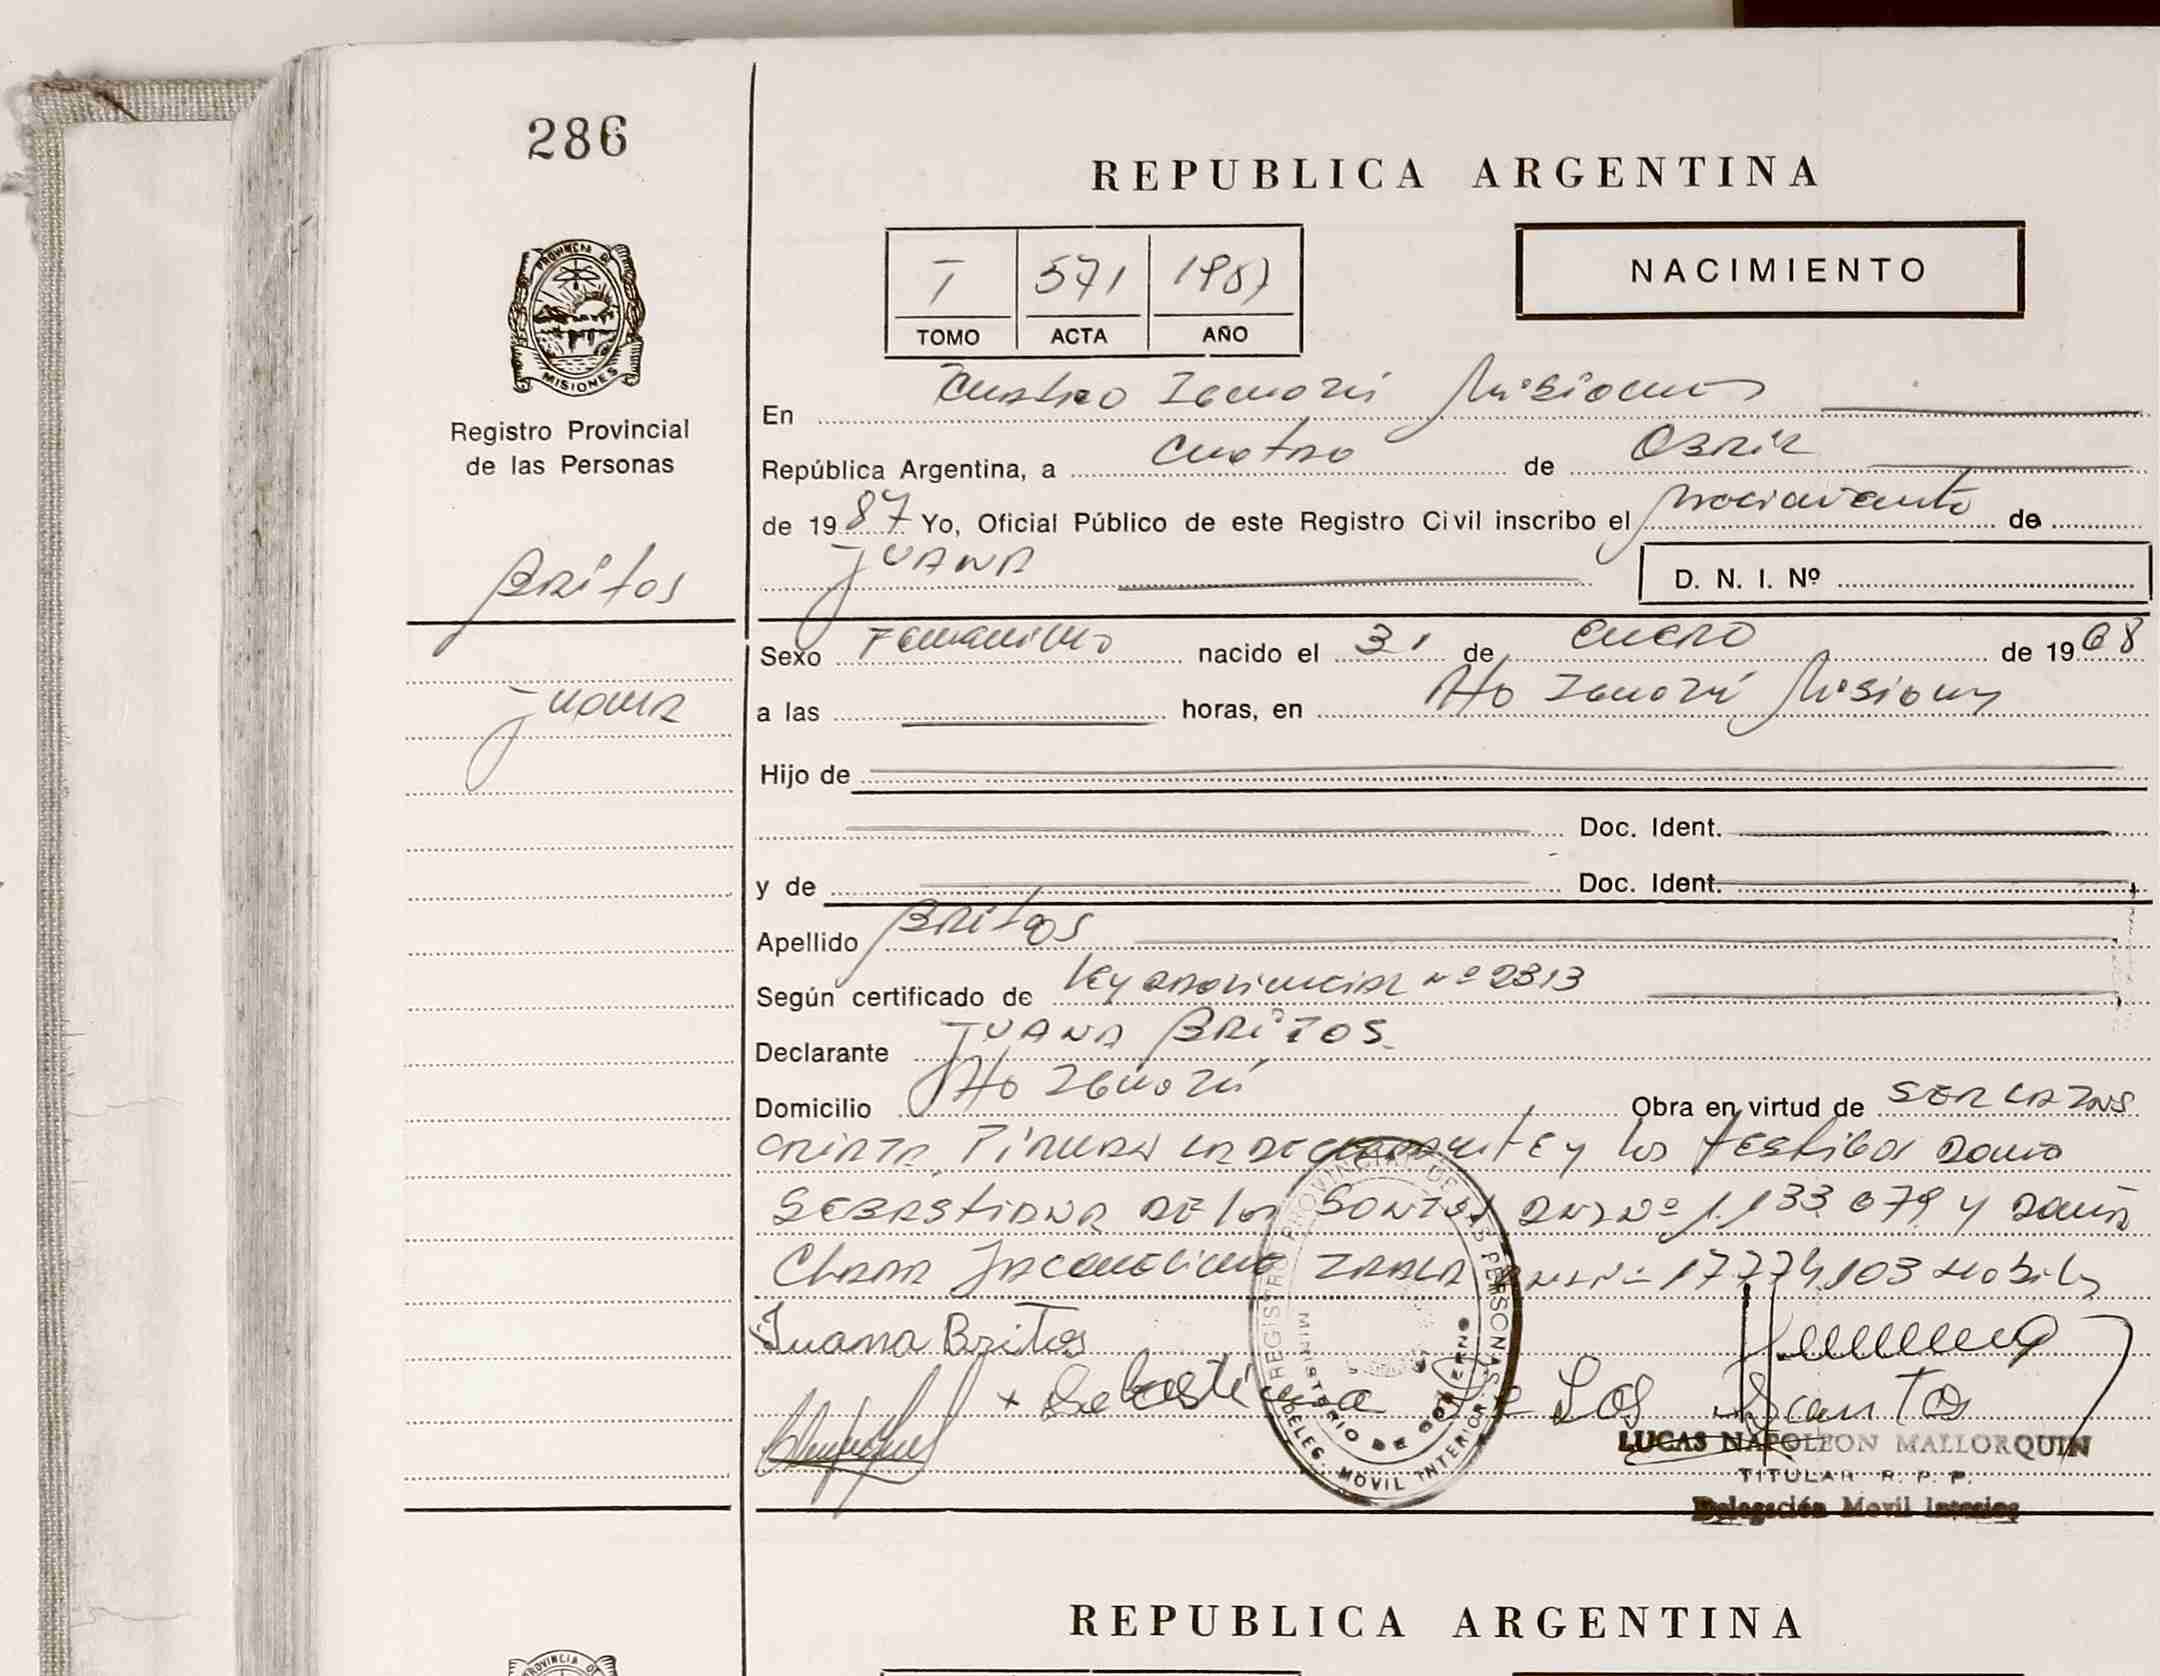 286
REPUBLICA ARGENTINA
PROVINCIA DE
MISIONES
Registro Provincial
de las Personas
T 571 1987
TOMO ACTA AÑO
NACIMIENTO
En Misiones
República Argentina, a Cuatro de Abril
de 1987 Yo, Oficial Público de este Registro Civil inscribo el nacimiento de
JUANA
D. N. I. Nº
Britos
Juana
Sexo Femenino nacido el 31 de enero de 1968
a las horas, en Misiones
Hijo de
Doc. Ident.
y de Doc. Ident.
Apellido Britos
Según certificado de Ley provincial nº 2313
Declarante JUANA BRITOS
Domicilio
Obra en virtud de
la declarante y los testigos
Sebastiana de los Santos 1.133.079 y
Clara 17.774.103
REGISTRO PROVINCIAL DE LAS PERSONAS
MINISTERIO DE GOBIERNO
DELEG. MOVIL INTERIOR
Juana Britos
+ Sebastiana De Los Santos
LUCAS NAPOLEON MALLORQUIN
TITULAR R. P. P.
Delegación Movil Interior
REPUBLICA ARGENTINA
PROVINCIA DE